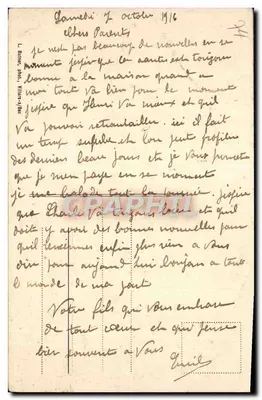 Samedi 7 octobre 1916
Chers Parents
je nest pas beaucoup de nouvelles en se
moment jespir que la santé est toujours
bonne a la maison quand a
moi tout va bien pour le moment
jespire que Henri va mieux et quil
va pouvoir retravailler. ici il fait
un temp superbe et lon peut profiter
des dernier beau jours et je vous promete
que je men paye en se moment
je me balade tout la journée. jespire
que Charle va toujours bien et quil
doit y avoir des bonnes nouvelles pour
quil enfin plus rien a vous
dire pour aujourd hui bonjour a tout
le monde de ma part
Votre fils qui vous embrasse
de tout cœur et qui pense
bien souvent a vous
Emile
CPAPHIL